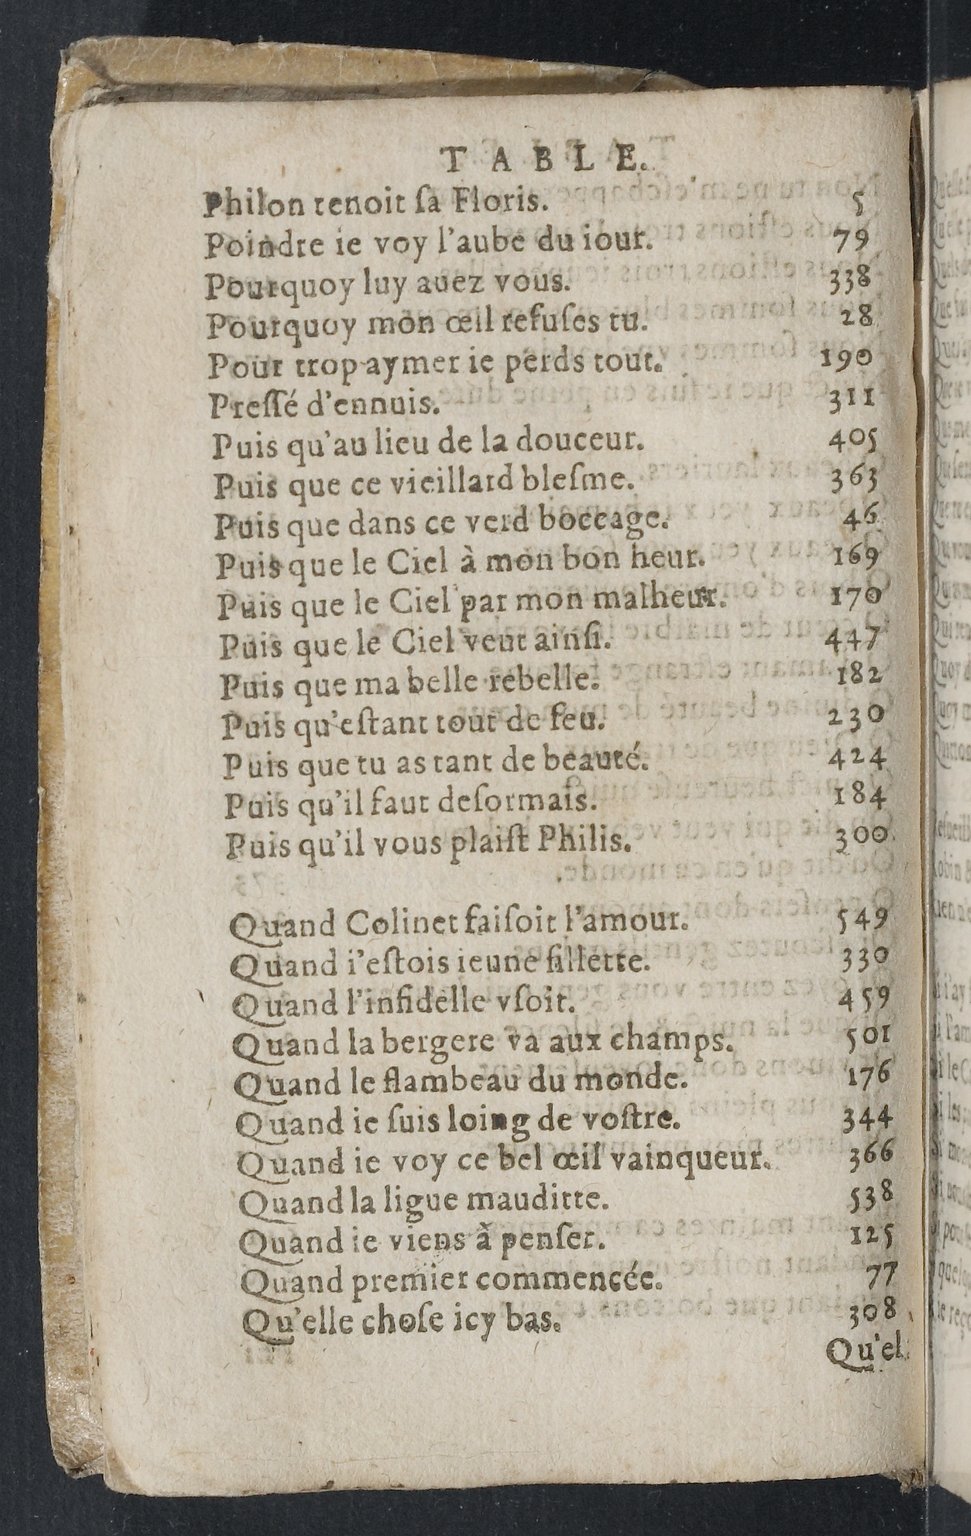 TABLE.
Philon tenoit ſa Floris. 5
Poindre ie voy l'aube du iour. 79
Pourquoy luy auez vous. 338
Pourquoy mon œil refuſes tu. 28
Pour trop aymer ie perds tout. 190
Preſſé d'ennuis. 311
Puis qu'au lieu de la douceur. 405
Puis que ce vieillard bleſme. 363
Puis que dans ce verd boccage. 46
Puis que le Ciel à mon bon heur. 169
Puis que le Ciel par mon malheur. 170
Puis que le Ciel veut ainſi. 447
Puis que ma belle rebelle. 182
Puis qu'eſtant tout de feu. 230
Puis que tu as tant de beauté. 424
Puis qu'il faut deſormais. 184
Puis qu'il vous plaiſt Philis. 300
Quand Colinet faiſoit l'amour. 549
Quand i'eſtois ieune fillette. 330
Quand l'infidelle vſoit. 459
Quand la bergere va aux champs. 501
Quand le flambeau du monde. 176
Quand ie ſuis loing de voſtre. 344
Quand ie voy ce bel œil vainqueur. 366
Quand la ligue mauditte. 538
Quand ie viens à penſer. 125
Quand premier commencée. 77
Qu'elle choſe icy bas. 308
Qu'el